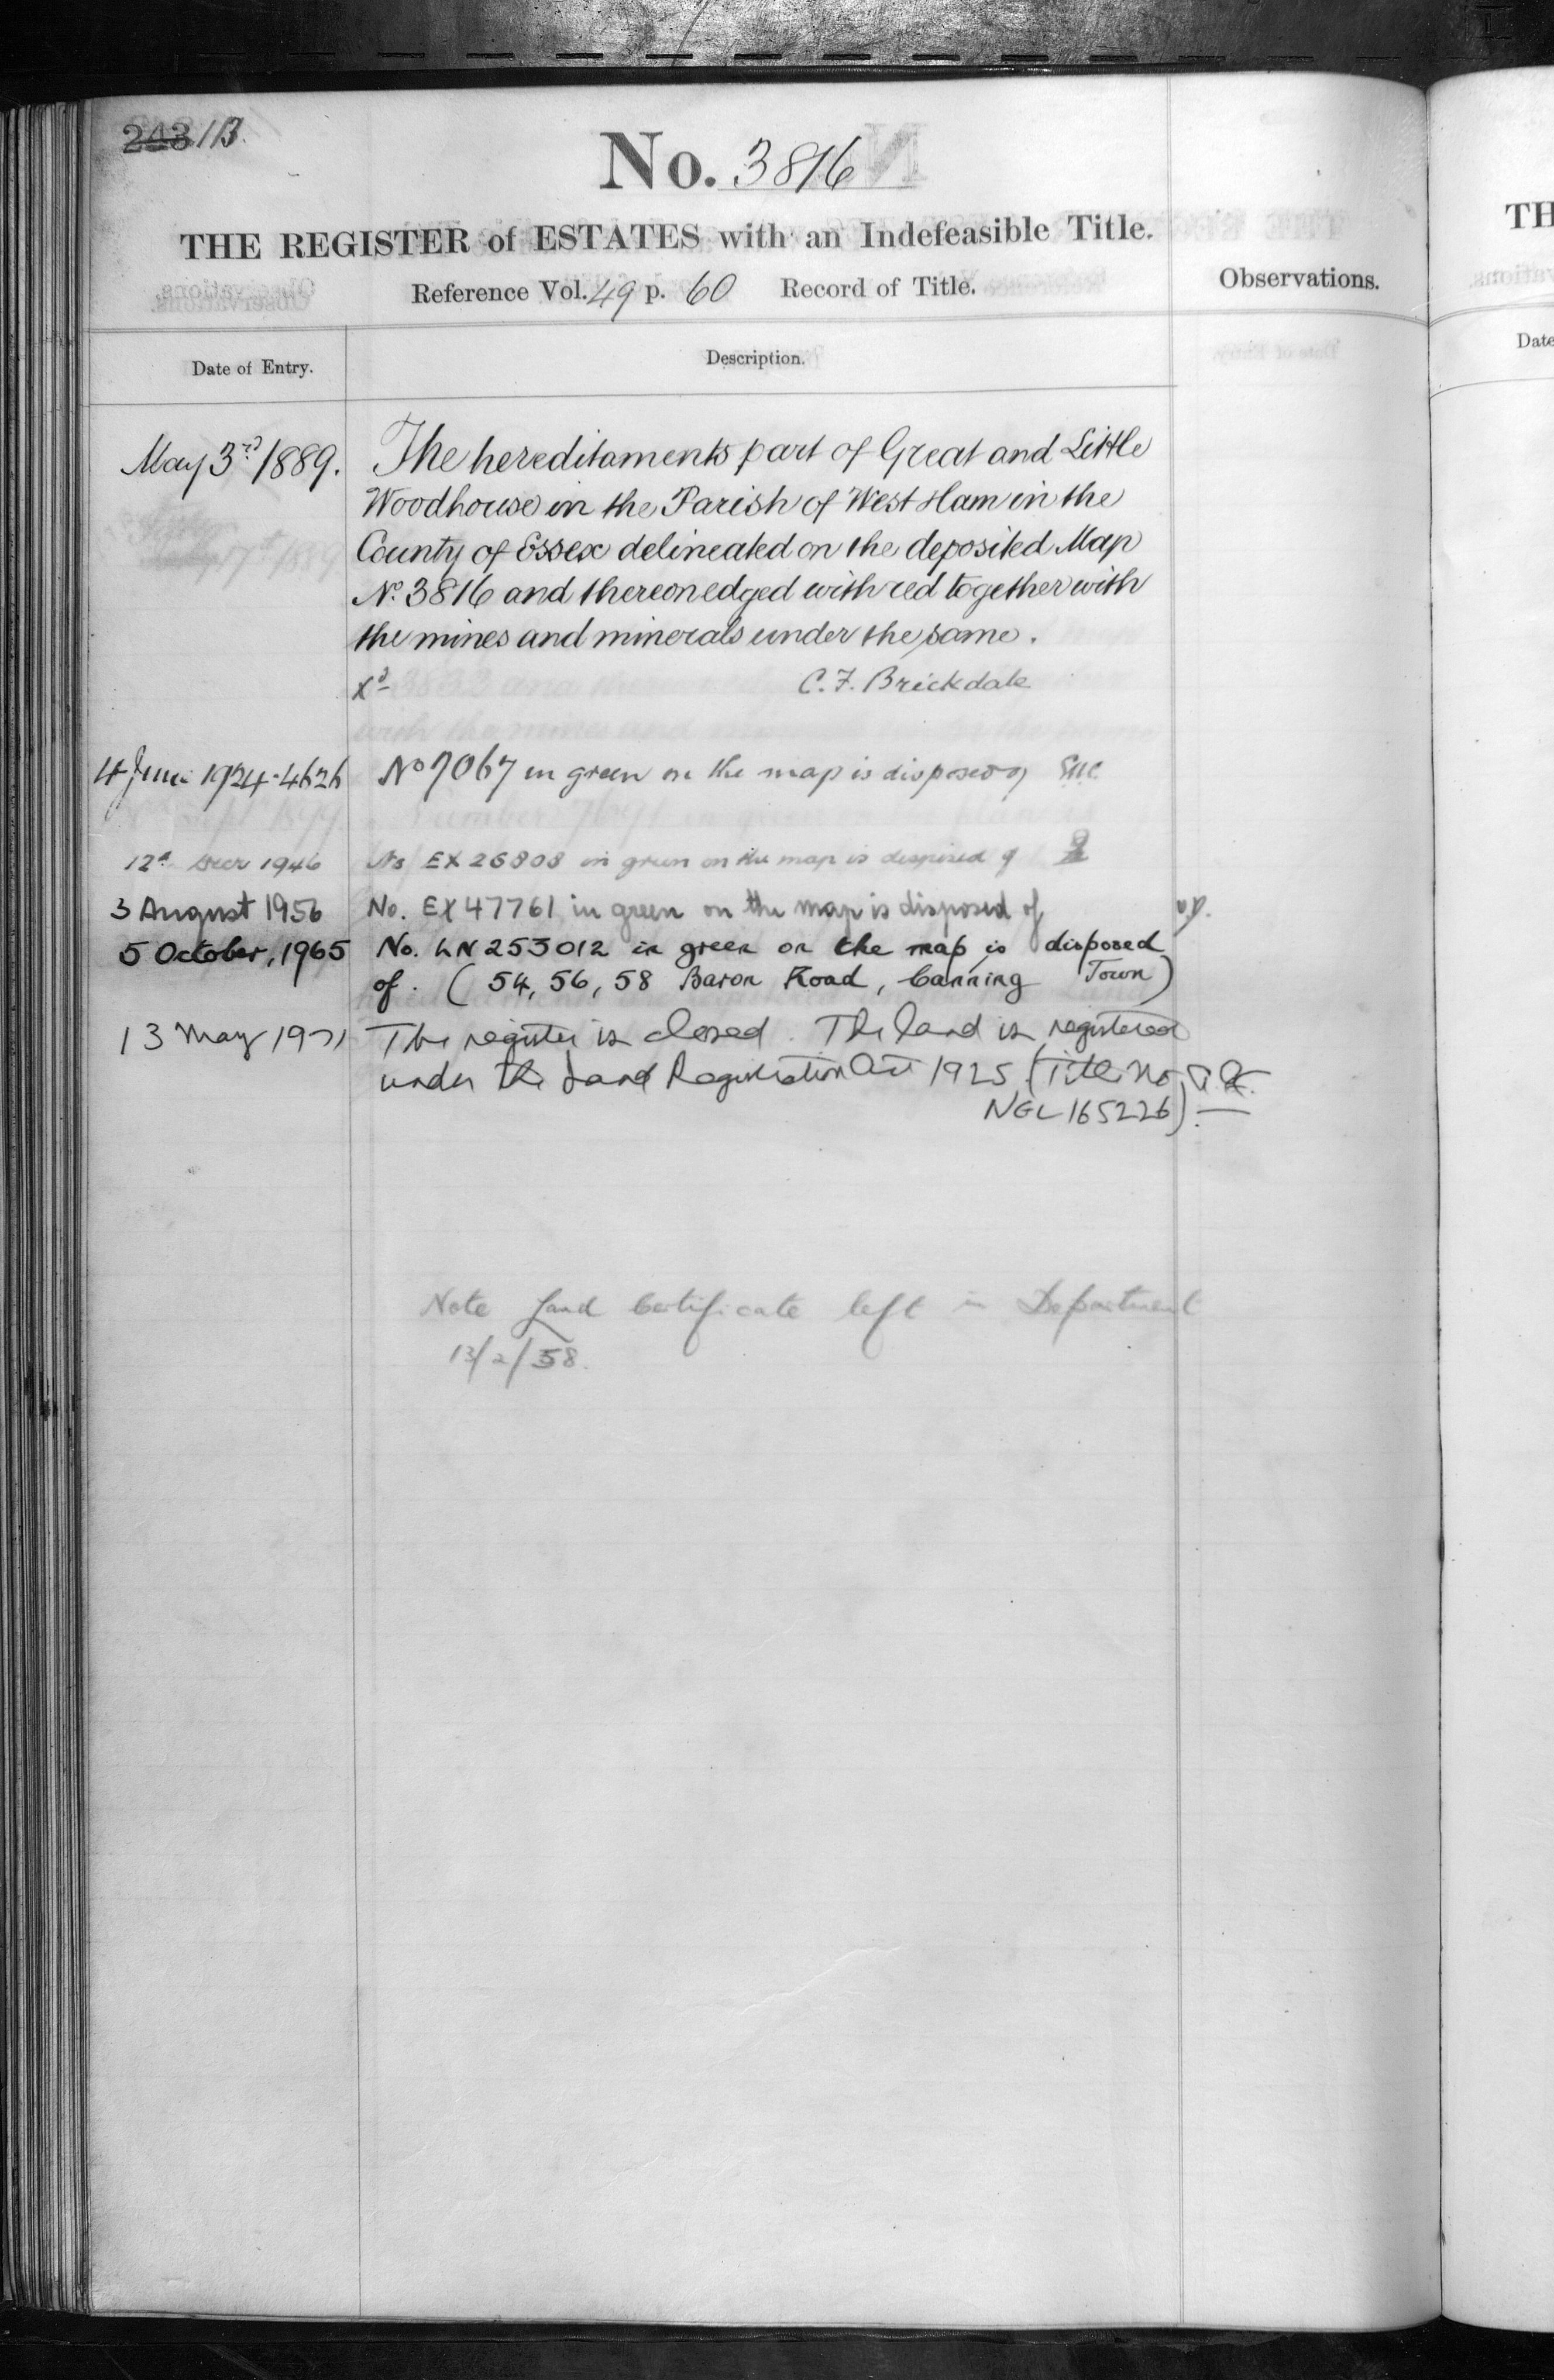 243/13.
No. 3816
THE REGISTER of ESTATES with an Indefeasible Title.
Reference Vol. 49 p. 60 Record of Title.
Observations.
Date of Entry.
Description.
May 3rd 1889. The hereditaments part of Great and Little
Woodhouse in the Parish of West Ham in the
County of Essex delineated on the deposited Map
No. 3816 and thereon edged with red together with
the mines and minerals under the same.
Xd C. F. Brickdale
4 June 1924 · 4626 No 7067 in green on the map is disposed of
12th Decr 1946 No EX 26808 in green on the map is disposed of
3 August 1956 No. EX 47761 in green on the map is disposed of
5 October, 1965 No. LN 253012 in green on the map is disposed
of. (54, 56, 58 Baron Road, Canning Town)
13 May 1971 The register is closed. The land is registered
under the Land Registration Act 1925 (Title No.
NGL 165226).
Note Land Certificate left in Department
13/2/58.
TH
Date